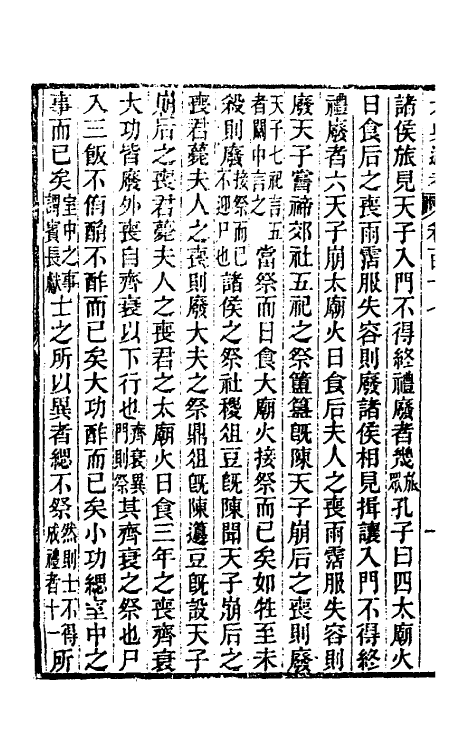 諸侯旅見天子入門不得終禮廢者幾旅眾孔子曰四太廟火
日食后之喪雨霑服失容則廢諸侯相見揖讓入門不得終
禮廢者六天子崩太廟火日食后夫人之喪雨霑服失容則
廢天子嘗禘郊社五祀之祭簠簋旣陳天子崩后之喪則廢
天子七祀言五者關中言之當祭而日食大廟火接祭而已矣如牲至未
殺則廢接祭而已不迎尸也諸侯之祭社稷俎豆旣陳聞天子崩后之
喪君薨夫人之喪則廢大夫之祭鼎俎旣陳籩豆旣設天子
崩后之喪君薨夫人之喪君之太廟火日食三年之喪齊衰
大功皆廢外喪自齊衰以下行也齊衰異門則祭其齊衰之祭也尸
入三飯不侑酳不酢而已矣大功酢而已矣小功緦室中之
事而已矣室中之事謂賓長獻士之所以異者緦不祭然則士不得成禮者十一所